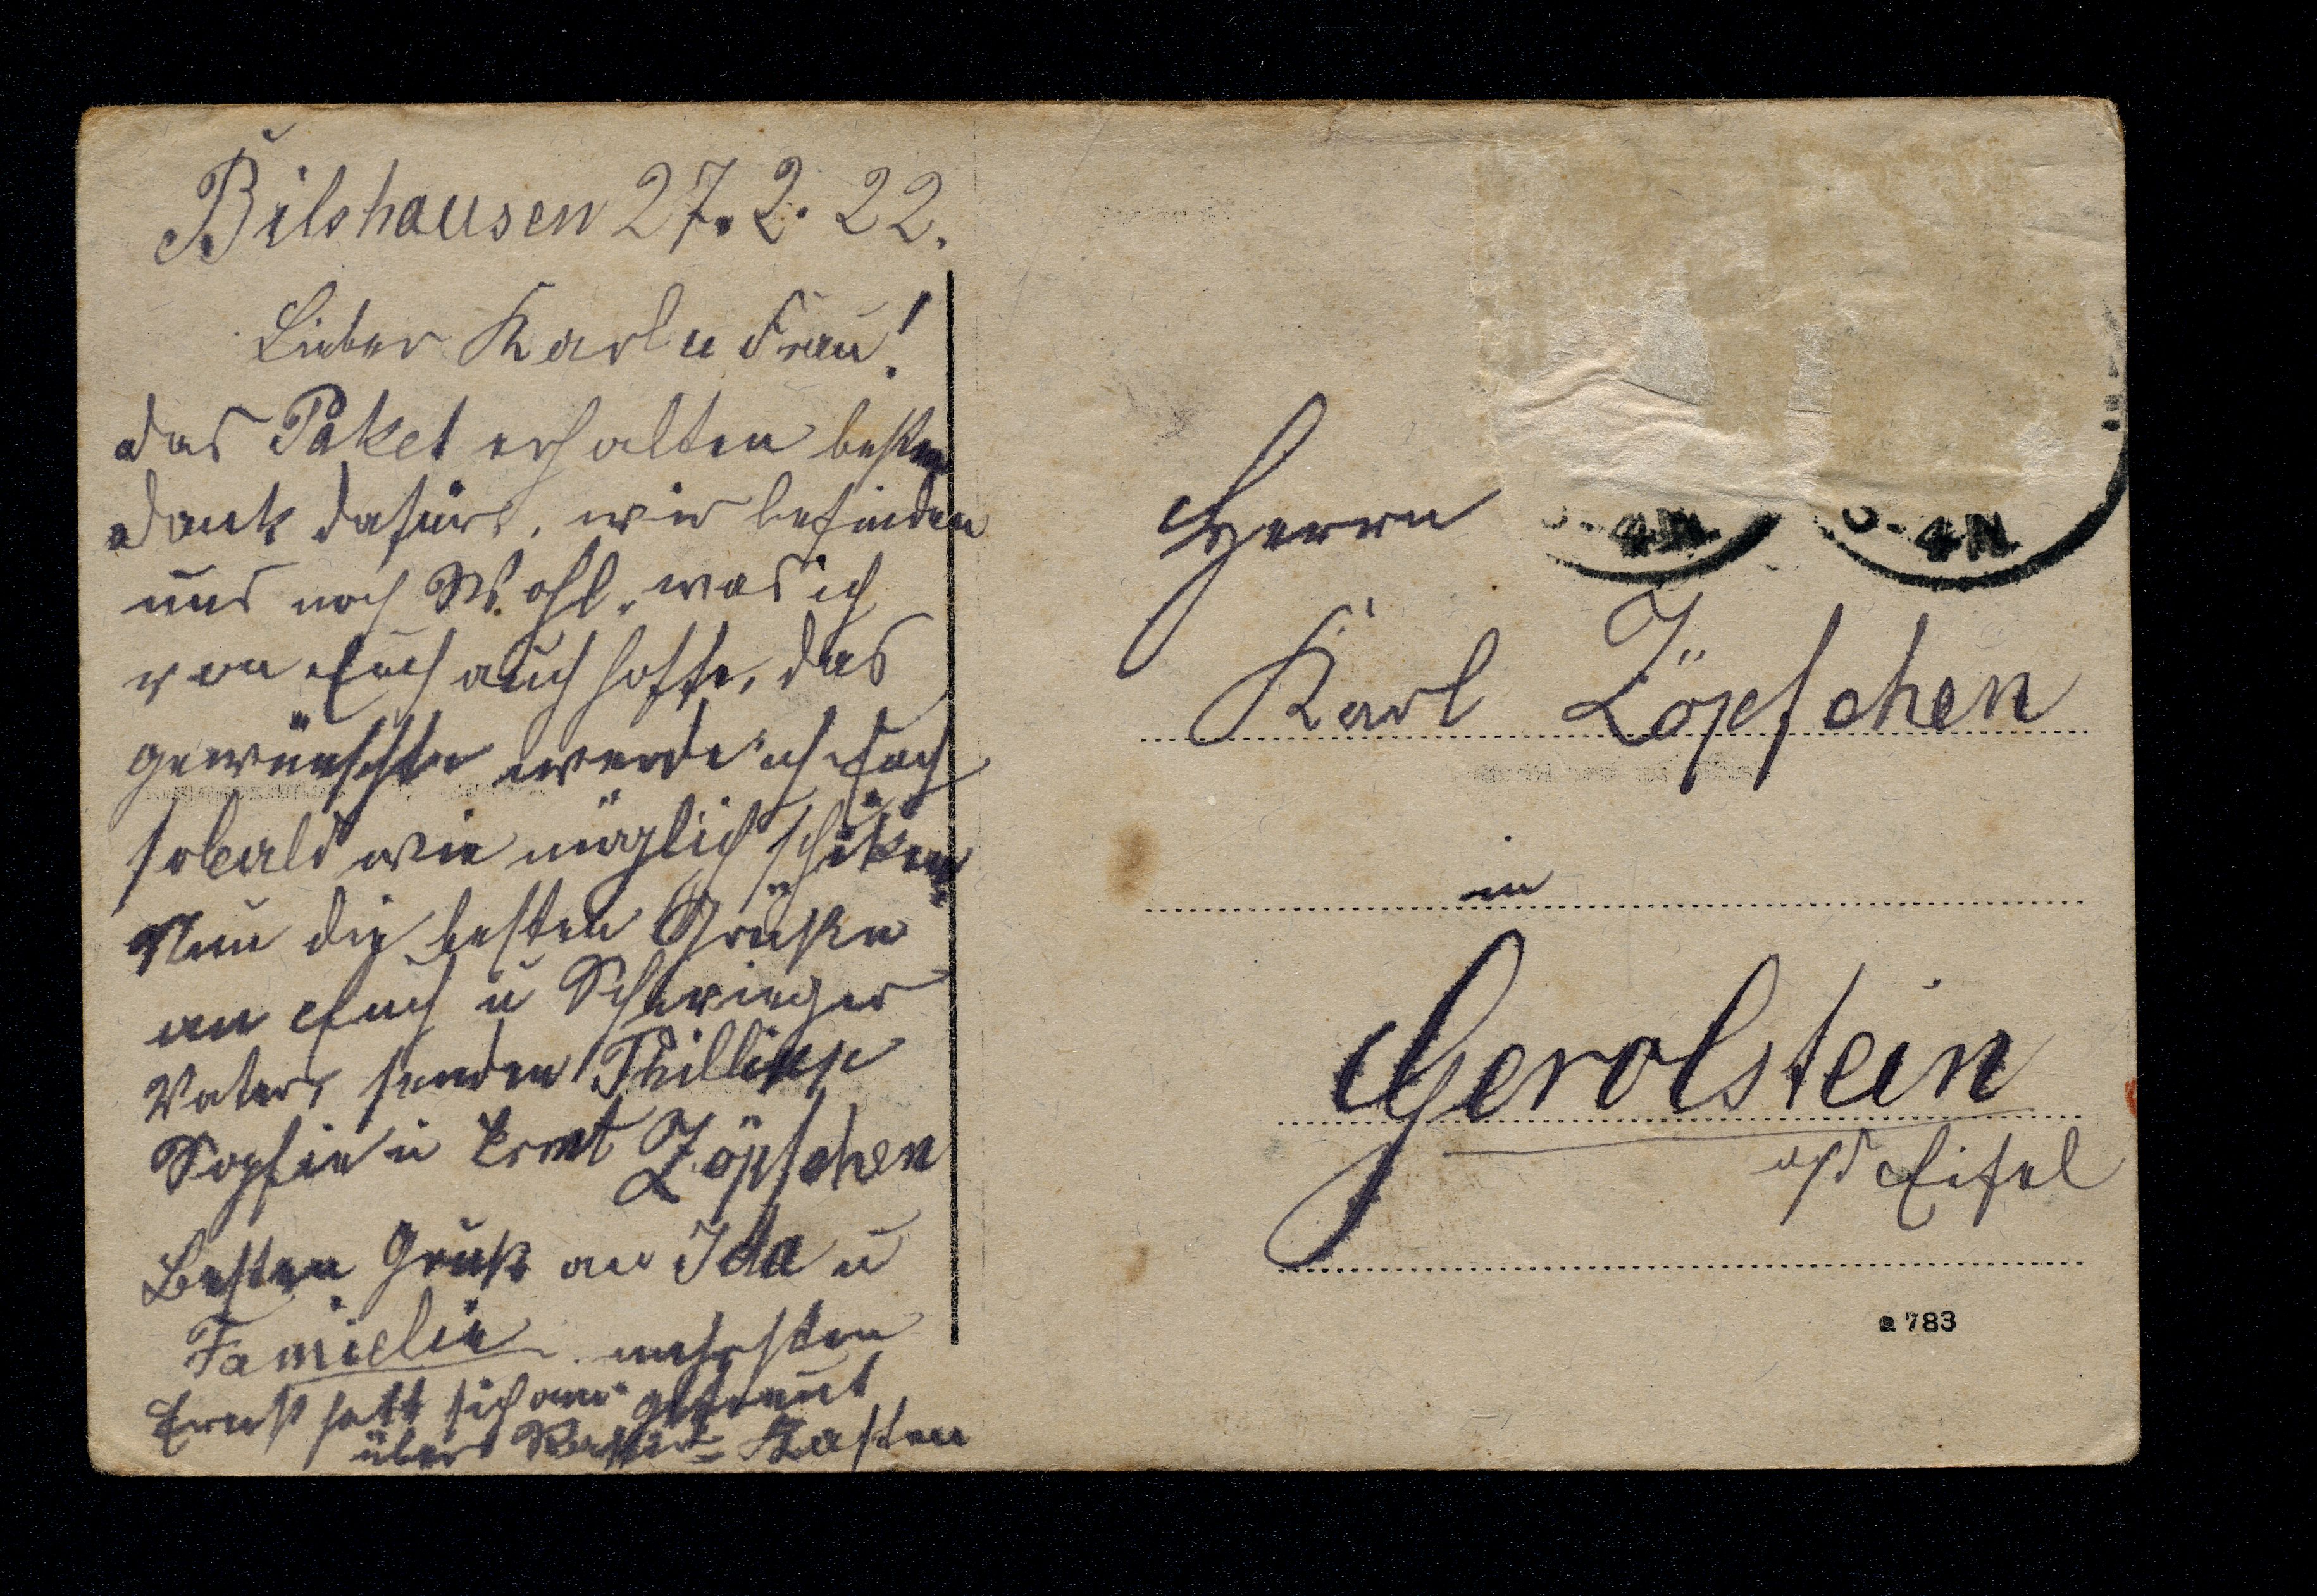 Bilshausen 27. 2. 22.
Lieber Karl u Frau!
das Paket erhalten besten
dank dafür, wir befinden
uns noch Wohl, was ich
von Euch auch hoffe, das
gewünschte werde ich Euch
sobald wie möglich schiken
Nun die besten Grüße
an Euch u Schwieger
Vater, senden Phillipp
Sopfie u Ernst Zöpfchen
Besten Gruß an Ida u
Familie
Ernst hatt sich am gefreut
über Kasten
Herrn
Karl Zöpfchen
in
Gerolstein
a/d Eifel
3-4N
3-4N
a 783